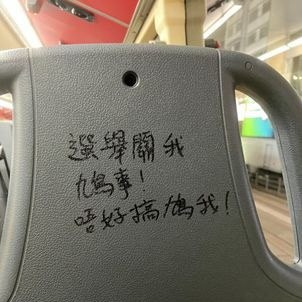 選舉關我
鳩事！
唔好搞鳩我！